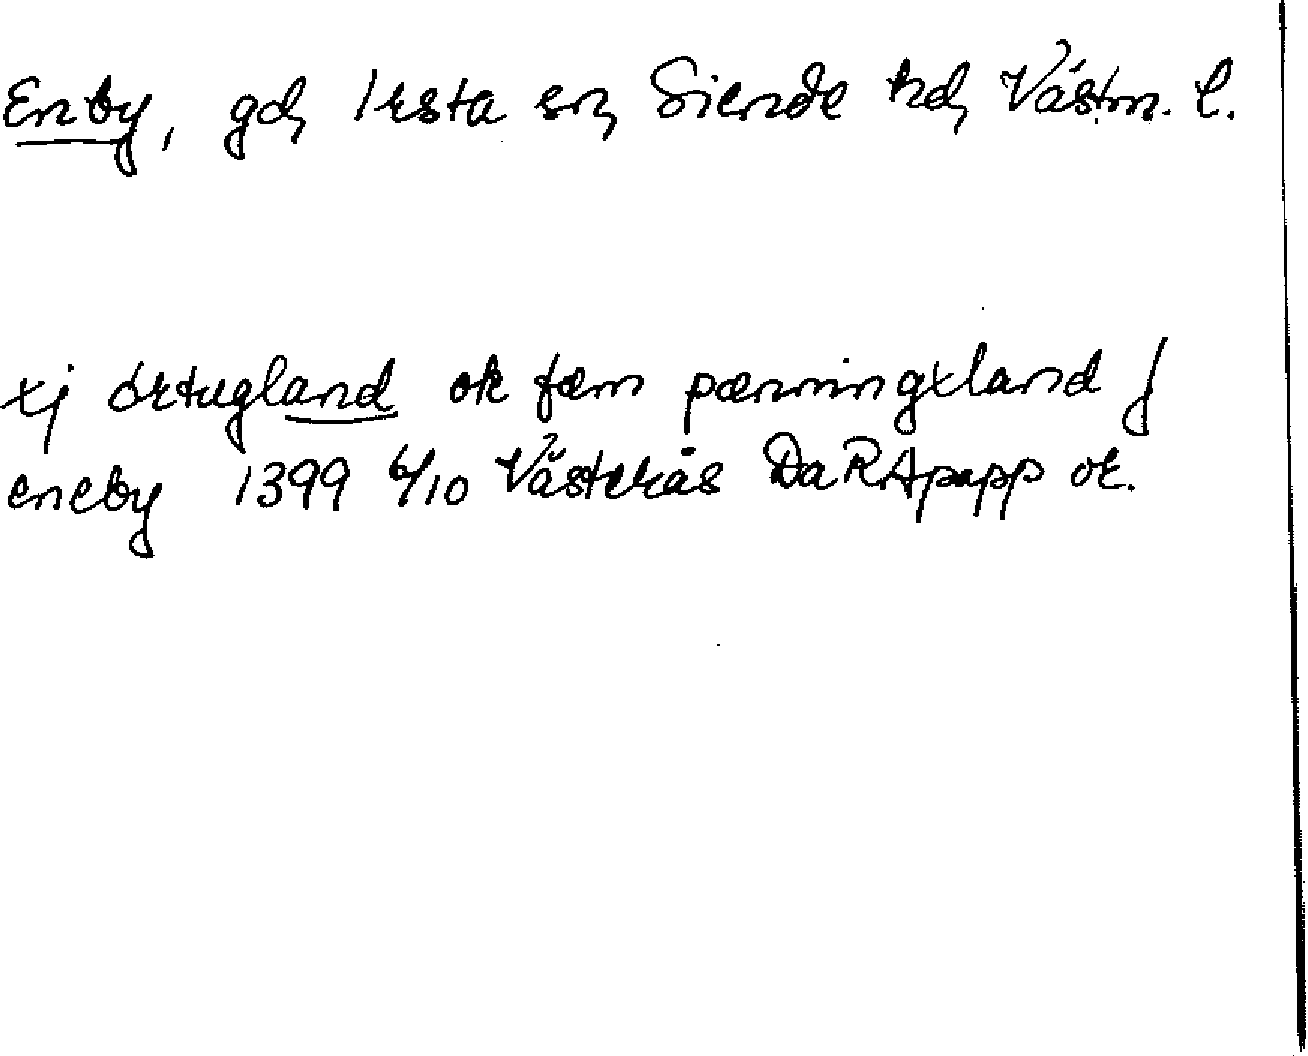 Enby, gd, Irsta sn, Siende hd, Västm. l.
xj örtugland ok fæm pænningxland j
eneby 1399 6/10 Västerås DaRApapp or.